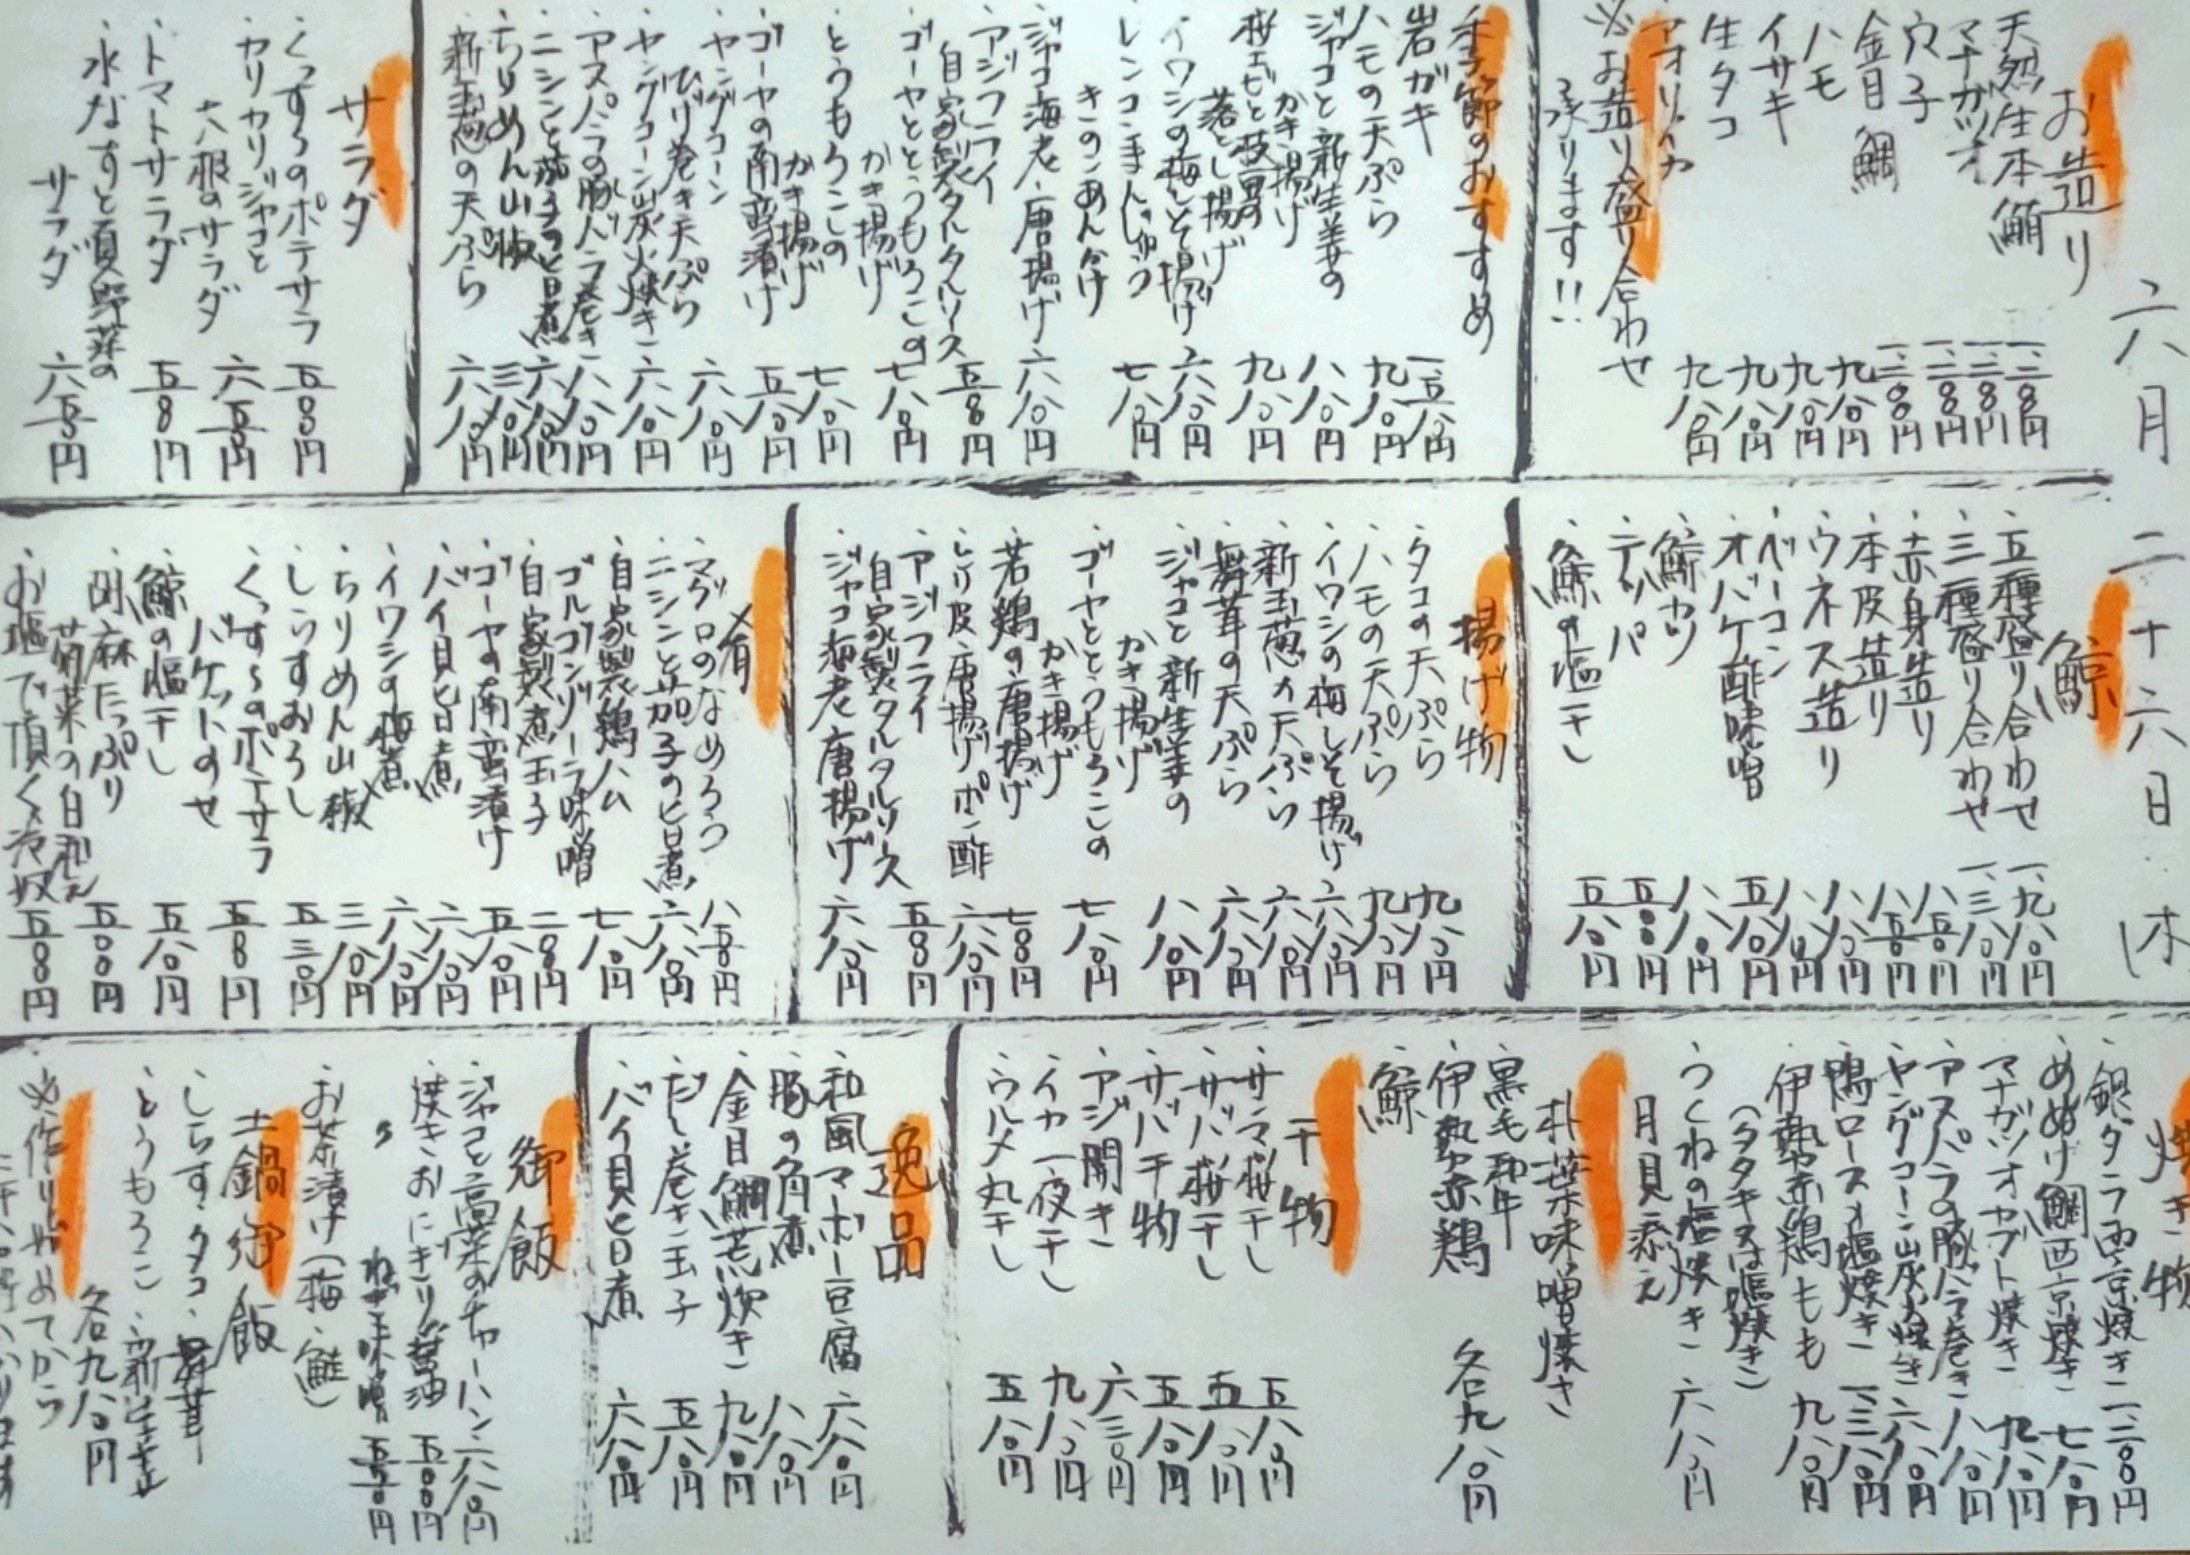 六月二十六日 木
お造り
天然生本鮪 一、二八〇円
マナガツオ 一、三八〇円
穴子 一、二八〇円
金目鯛 一、三八〇円
ハモ 九八〇円
イサキ 九八〇円
生タコ 九八〇円
アオリイカ 九八〇円
※お造り盛り合わせ
承ります!!
季節のおすすめ
岩ガキ 一、五八〇円
ハモの天ぷら 九八〇円
ジャコと新生姜の
かき揚げ 八八〇円
桜エビと枝豆の
落とし揚げ 九八〇円
イワシの梅しそ揚げ 六八〇円
レンコンまんじゅう
きのこあんかけ 七八〇円
ジャコ海老唐揚げ 六八〇円
アジフライ
自家製タルタルソース 五八〇円
ゴーヤととうもろこしの
かき揚げ 七八〇円
とうもろこしの
かき揚げ 七八〇円
ゴーヤの南蛮漬け 五八〇円
ヤングコーン
ひげ巻き天ぷら 六八〇円
ヤングコーン炭火焼き 六八〇円
アスパラの豚バラ巻き 八八〇円
ニシンと茄子の旨煮 六八〇円
ちりめん山椒 三八〇円
新玉葱の天ぷら 六八〇円
サラダ
くっするのポテサラ 五八〇円
カリカリジャコと
大根のサラダ 六五〇円
トマトサラダ 五八〇円
水なすと夏野菜の
サラダ 六五〇円
鯨
五種盛り合わせ 一、九八〇円
三種盛り合わせ 一、三八〇円
赤身造り 八五〇円
本皮造り 八五〇円
ウネス造り 八八〇円
ベーコン 八八〇円
オバケ酢味噌 五八〇円
鯨カツ 八八〇円
テッパ 五八〇円
鯨の塩干し 五八〇円
揚げ物
タコの天ぷら 九八〇円
ハモの天ぷら 九八〇円
イワシの梅しそ揚げ 六八〇円
新玉葱の天ぷら 六八〇円
舞茸の天ぷら 六八〇円
ジャコと新生姜の
かき揚げ 八八〇円
ゴーヤととうもろこしの
かき揚げ 七八〇円
若鶏の唐揚げ 七八〇円
とり皮唐揚げポン酢 六八〇円
アジフライ
自家製タルタルソース 五八〇円
ジャコ海老唐揚げ 六八〇円
肴
マグロのなめろう 八五〇円
ニシンと茄子の旨煮 六八〇円
自家製鶏ハム 七八〇円
ゴルゴンゾーラ味噌
自家製煮玉子 二八〇円
ゴーヤの南蛮漬け 五八〇円
バイ貝旨煮 六八〇円
イワシの梅煮 六八〇円
ちりめん山椒 三八〇円
しらすおろし 五三〇円
くっするのポテサラ
バケットのせ 五八〇円
鯨の塩干し 五八〇円
胡麻たっぷり
菊菜の白和え 五八〇円
お塩で頂く冷奴 五八〇円
焼き物
銀ダラ西京焼き 一、二八〇円
めぬけ鯛西京焼き 七八〇円
マナガツオカブト焼き 九八〇円
アスパラの豚バラ巻き 八八〇円
ヤングコーン炭火焼き 六八〇円
鴨ロース塩焼き 一、三八〇円
伊勢赤鶏もも 九八〇円
(タタキ又は塩焼き)
つくねの塩焼き 六八〇円
月見添え
朴葉味噌焼き
黒毛和牛
伊勢赤鶏 各九八〇円
鯨
干物
サンマ桜干し 五八〇円
サバ桜干し 五八〇円
サバ干物 五八〇円
アジ開き 六三〇円
イカ一夜干し 九八〇円
ウルメ丸干し 五八〇円
逸品
和風マーボー豆腐 六八〇円
豚の角煮 八八〇円
金目鯛荒炊き 九八〇円
だし巻き玉子 五八〇円
バイ貝旨煮 六八〇円
御飯
ジャコと高菜のチャーハン 六八〇円
焼きおにぎり 醤油 五〇〇円
〃 ねぎ味噌 五五〇円
お茶漬け(梅・鮭)
土鍋御飯
しらす・タコ・舞茸
とうもろこし・新生姜
各九八〇円
※作りはじめてから